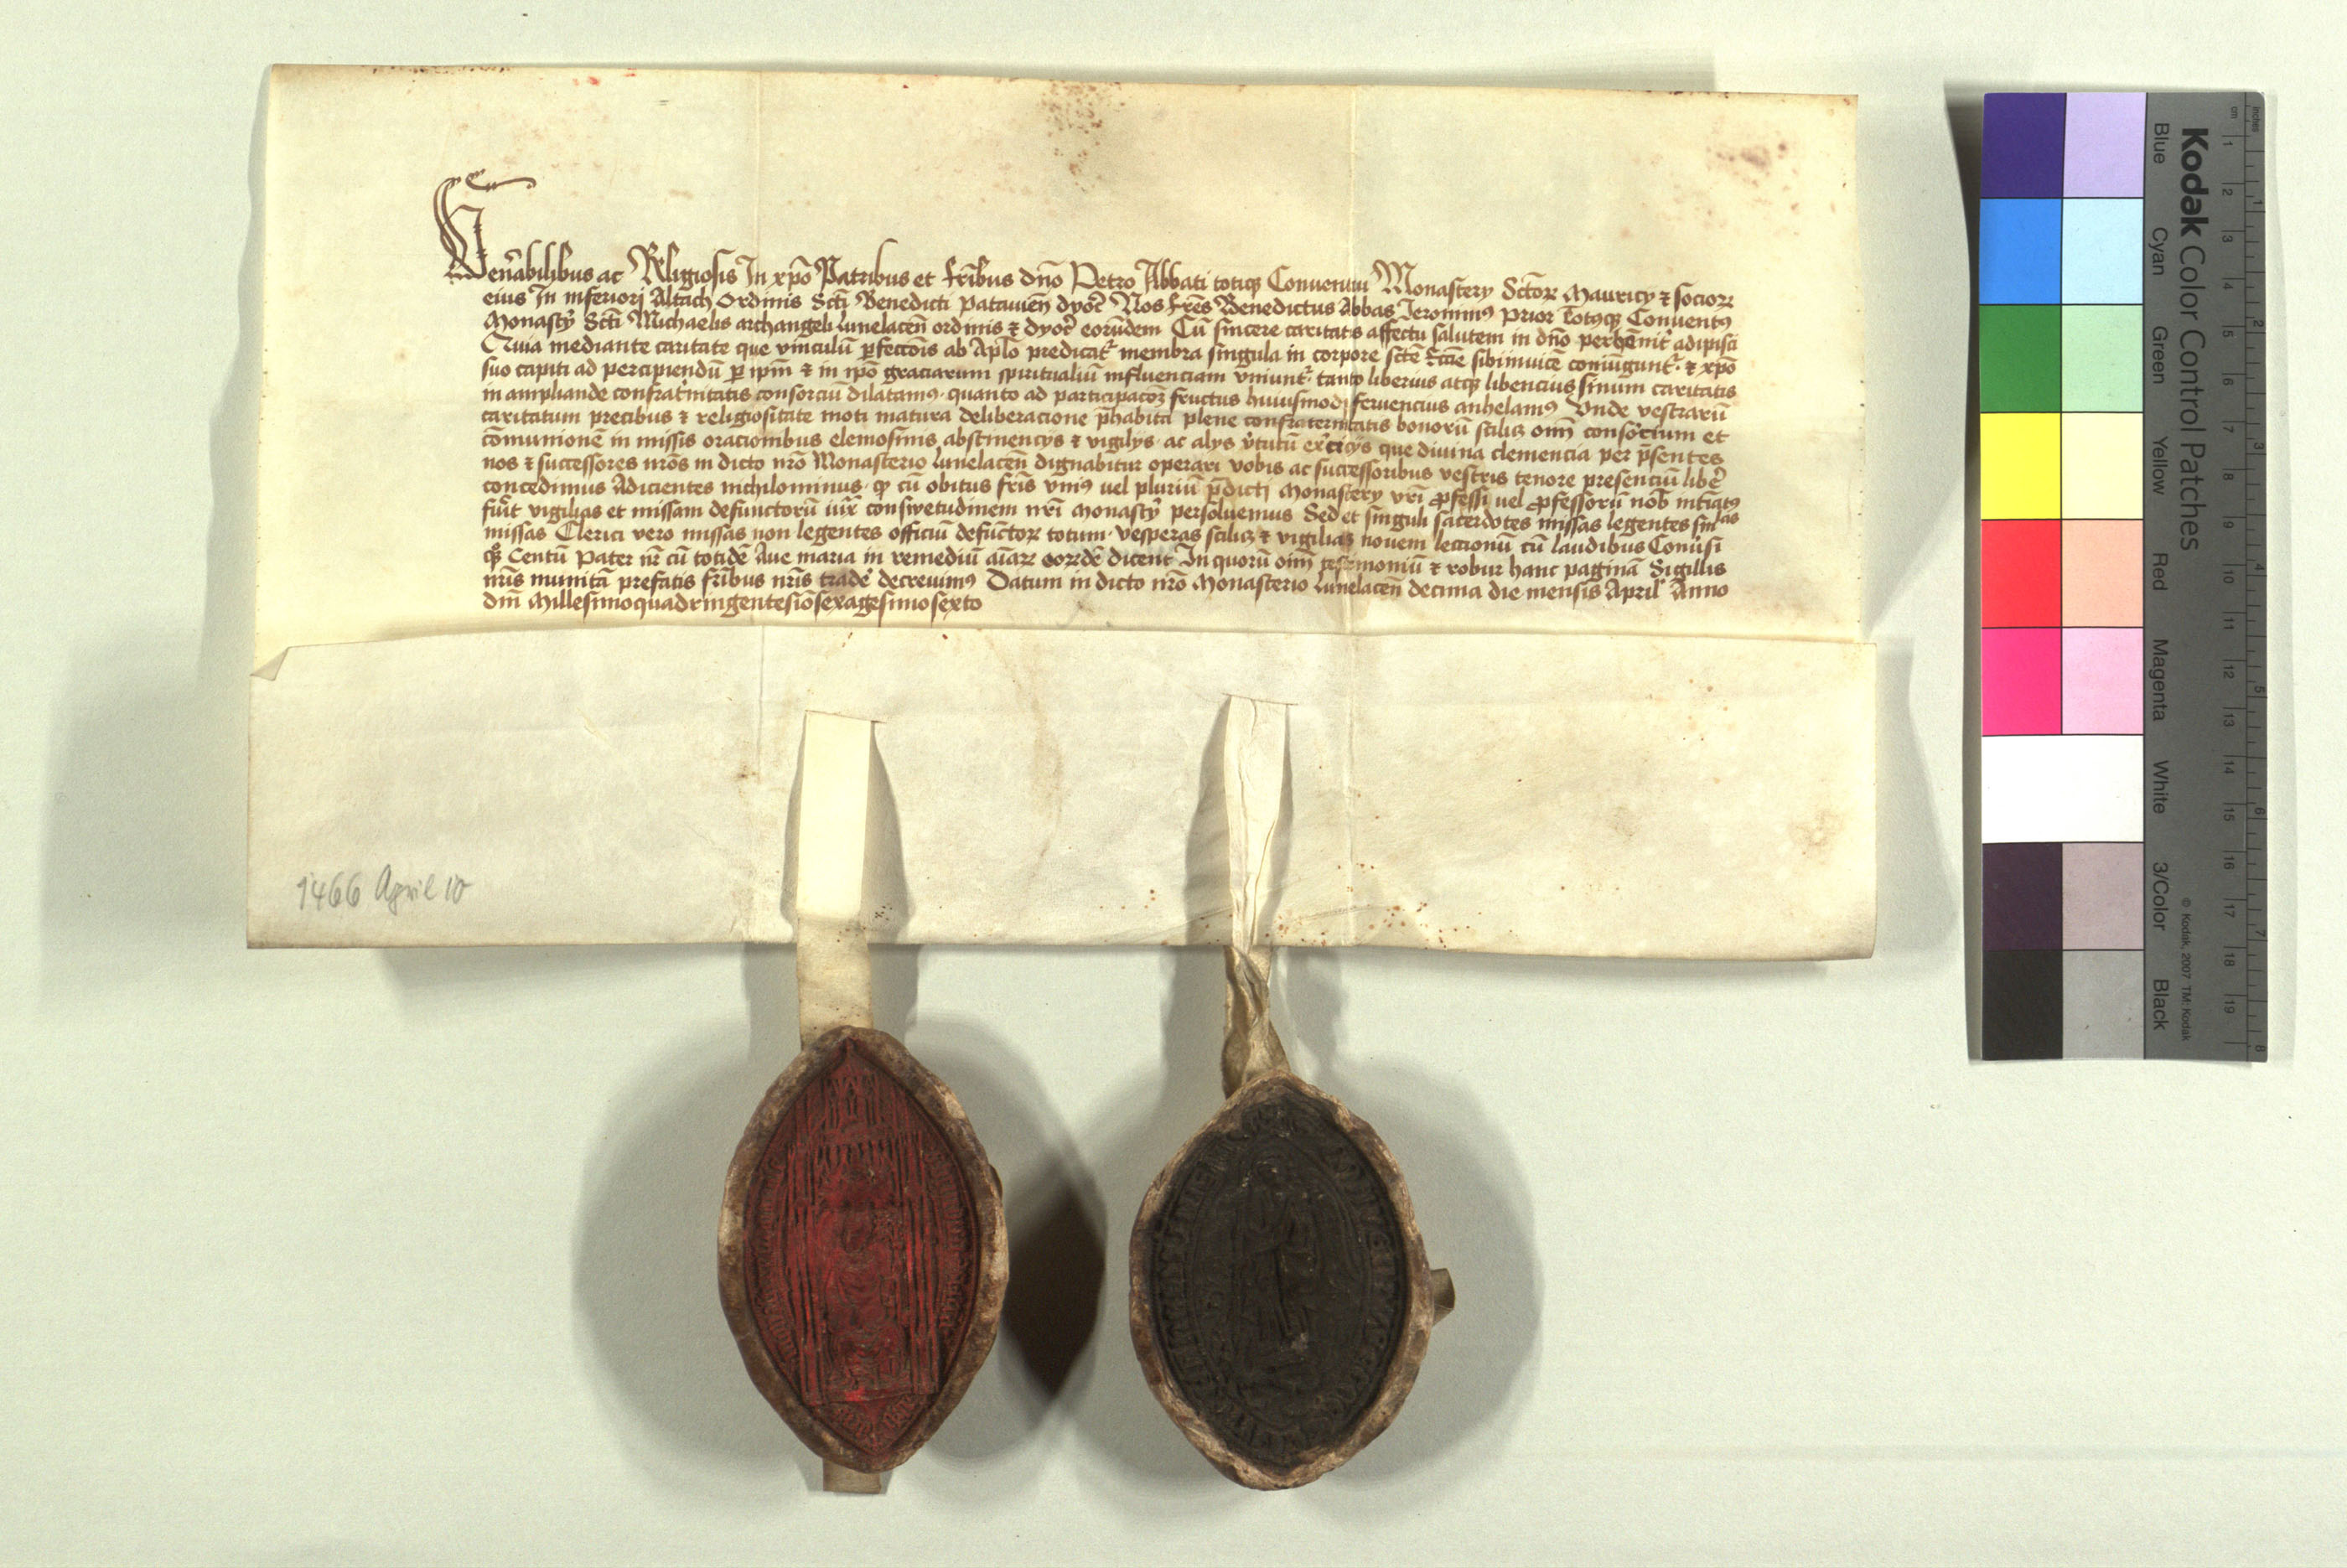 Ven̄abilibus ac Religiosis In xp̄o Patribus et fr̄ibus dn̄o Petro Abbati totiqꝫ Conventui Monastery Sctōꝝ Mauricy ⁊ socioꝝ
eius In inferiori Altach Ordinis Scti Benedicti Patauien̄ dyoc̄ Nos fr̄es Benedictus Abbas Ieronimꝰ Prior Totusqꝫ Conventꝰ
Monastȳ Scti Michaelis archangeli Lunelacen̄ ordinis ⁊ dyoc̄ eorūdem Cū sincere caritatis affectu salutem in dn̄o perhēnit̄ adipisci
Quia mediante caritate que vinculū ꝑfectōis ab Apl̄o predicat̄ membra singula in corpore sctē Eccīe sibiinuicē coniūgunt̄ ⁊ xp̄o
suo capiti ad percipiendū ꝑ ip̄m ⁊ in ip̄o graciarum spiritualiū influenciam vniunt̄ tanto liberius atqꝫ libencius sinum caritatis
in ampliande confrat̄nitatis consorciū dilatamꝰ quanto ad participacōꝫ fructus huiusmodi feruencius anhelamꝰ Vnde vestrarū
caritatum precibus ⁊ religiositate moti matura deliberacione p̄habita plene confraternitatis bonorū scilicꝫ om̄ consorcium et
cōmunionē in missis oracionibus elemosinis abstinencys ⁊ vigilys ac alys v̄tutū ex̄cicys que divina clemencia per p̄sentes
nos ⁊ successores nr̄os in dicto nr̄o Monasterio Lunelacen̄ dignabitur operari vobis ac successoribus vestris tenore presenciū liber̄
concedimus Adicientes nichilominus qꝫ cū obitus fr̄is vniꝰ uel pluriū p̄dicti Monastery vr̄i ꝓfessi uel ꝓfessorū nob̄ intīatꝰ
fūit vigilias et missam defunctorū iux̄ consuetudinem nr̄i Monastȳ persoluemus Sed et singuli sacerdotes missas legentes sinḡlas
missas Clerici vero missas non legentes officiū defūctoꝝ totum vesperas scilicꝫ ⁊ vigilias nouem leccionū cū laudibus Conūsi
qꝫ Centū Pater nr̄ cū totidē Aue maria in remediū aīaꝝ eoꝝdē dicent In quorū oīm testimoniū ⁊ robur hanc paginā Sigillis
nr̄is munitā prefatis fr̄ibus nr̄is trader̄ decreuimꝰ Datum in dicto nr̄o Monasterio Lunelacen̄ decima die mensis April̄ Anno
dn̄i Millesimoquadringentesiōsexagesimosexto
1466 April 10
Kodak Color Control Patches
Blue Cyan Green Yellow Red Magenta White 3/Color Black
© Kodak, 2007 TM: Kodak
cm 1 2 3 4 5 6 7 8 9 10 11 12 13 14 15 16 17 18 19
inches 1 2 3 4 5 6 7 8